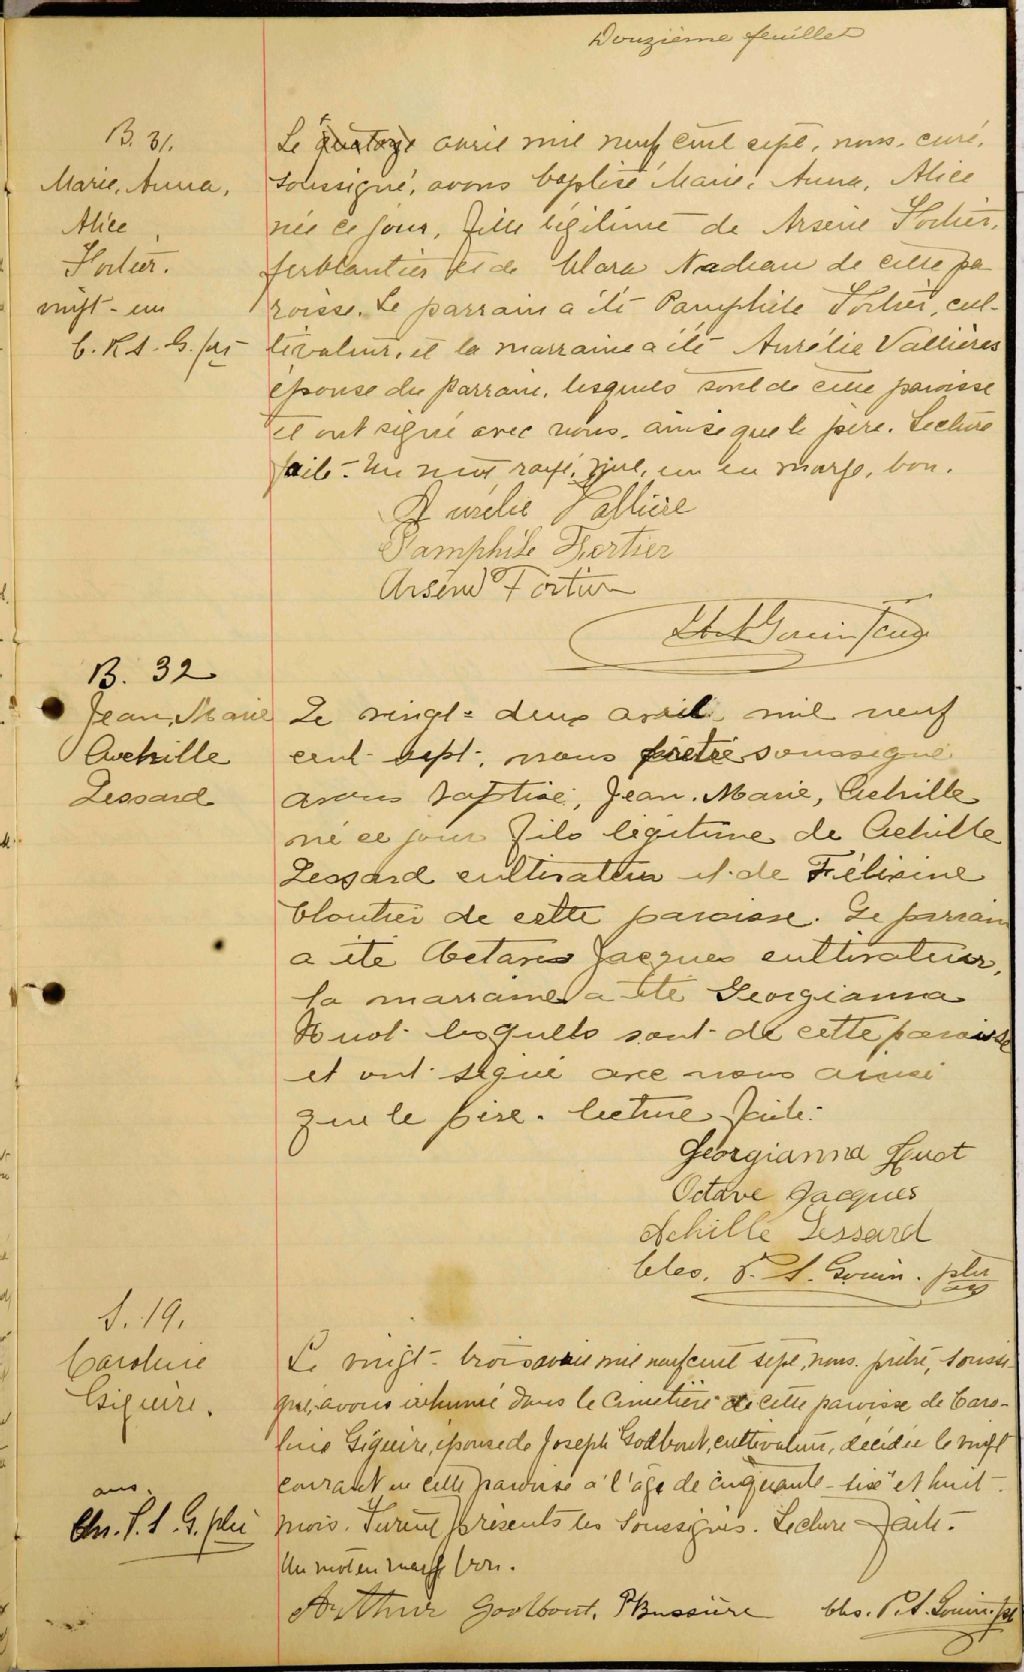 Douzième feuillet
B. 31.
Marie, Anna,
Alice
Fortier.
vingt-un
Le quatorze avril mil neuf cent sept, nous, curé,
soussigné, avons baptisé Marie, Anna, Alice
née ce jour, fille légitime de Arsène Fortier,
ferblantier et de Clara Nadeau de cette pa
roisse. Le parrain a été Pamphile Fortier, cul-
tivateur, et la marraine a été Aurélie Vallières
épouse du parrain, lesquels sont de cette paroisse
et ont signé avec nous, ainsi que le père. Lecture
faite. Un mot rayé, nul, un en marge, bon.
Aurélie Vallière
Pamphile Fortier
Arsène Fortier
B. 32
Jean, Marie
Achille
Lessard
Le vingt-deux avril mil neuf
cent sept, nous prêtre soussigné
avons baptisé, Jean, Marie, Achille
né ce jour fils légitime de Achille
Lessard cultivateur et de Félixine
Cloutier de cette paroisse. Le parrain
a été Octave Jacques cultivateur,
la marraine a été Georgianna
Huot lesquels sont de cette paroisse
et ont signé avec nous ainsi
que le père. lecture faite.
Georgianna Huot
Octave Jacques
Achille Lessard
Chs. P. S. Gouin. ptre
S. 19.
Caroline
Giguère.
ans
Chs. P. S. G. ptre
Le vingt-trois avril mil neuf cent sept, nous, prêtre, soussi-
gné, avons inhumé dans le cimetière de cette paroisse de Caro-
line Giguère, épouse de Joseph Godbout, cultivateur, décédée le vingt
courant en cette paroisse à l'âge de cinquante-six et huit
mois. Furent présents les soussignés. Lecture faite.
Un mot en marge bon.
Arthur Godbout, P Bussière Chs. P. S. Gouin, pt